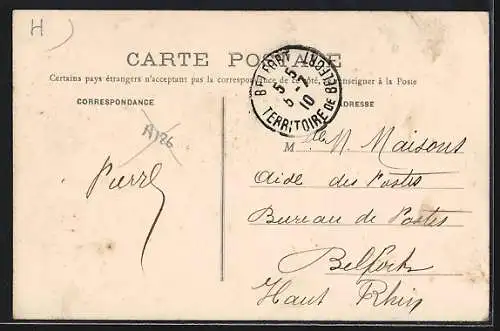 H
CARTE POSTALE
Certains pays étrangers n'acceptant pas la correspondance de ce côté, se renseigner à la Poste
CORRESPONDANCE
ADRESSE
BELFORT
5-5
5-7
10
TERRITOIRE DE BELFORT
A126
Pierre
M lle M. Maisons
Aide des Postes
Bureau de Postes
Belfort
Haut Rhin